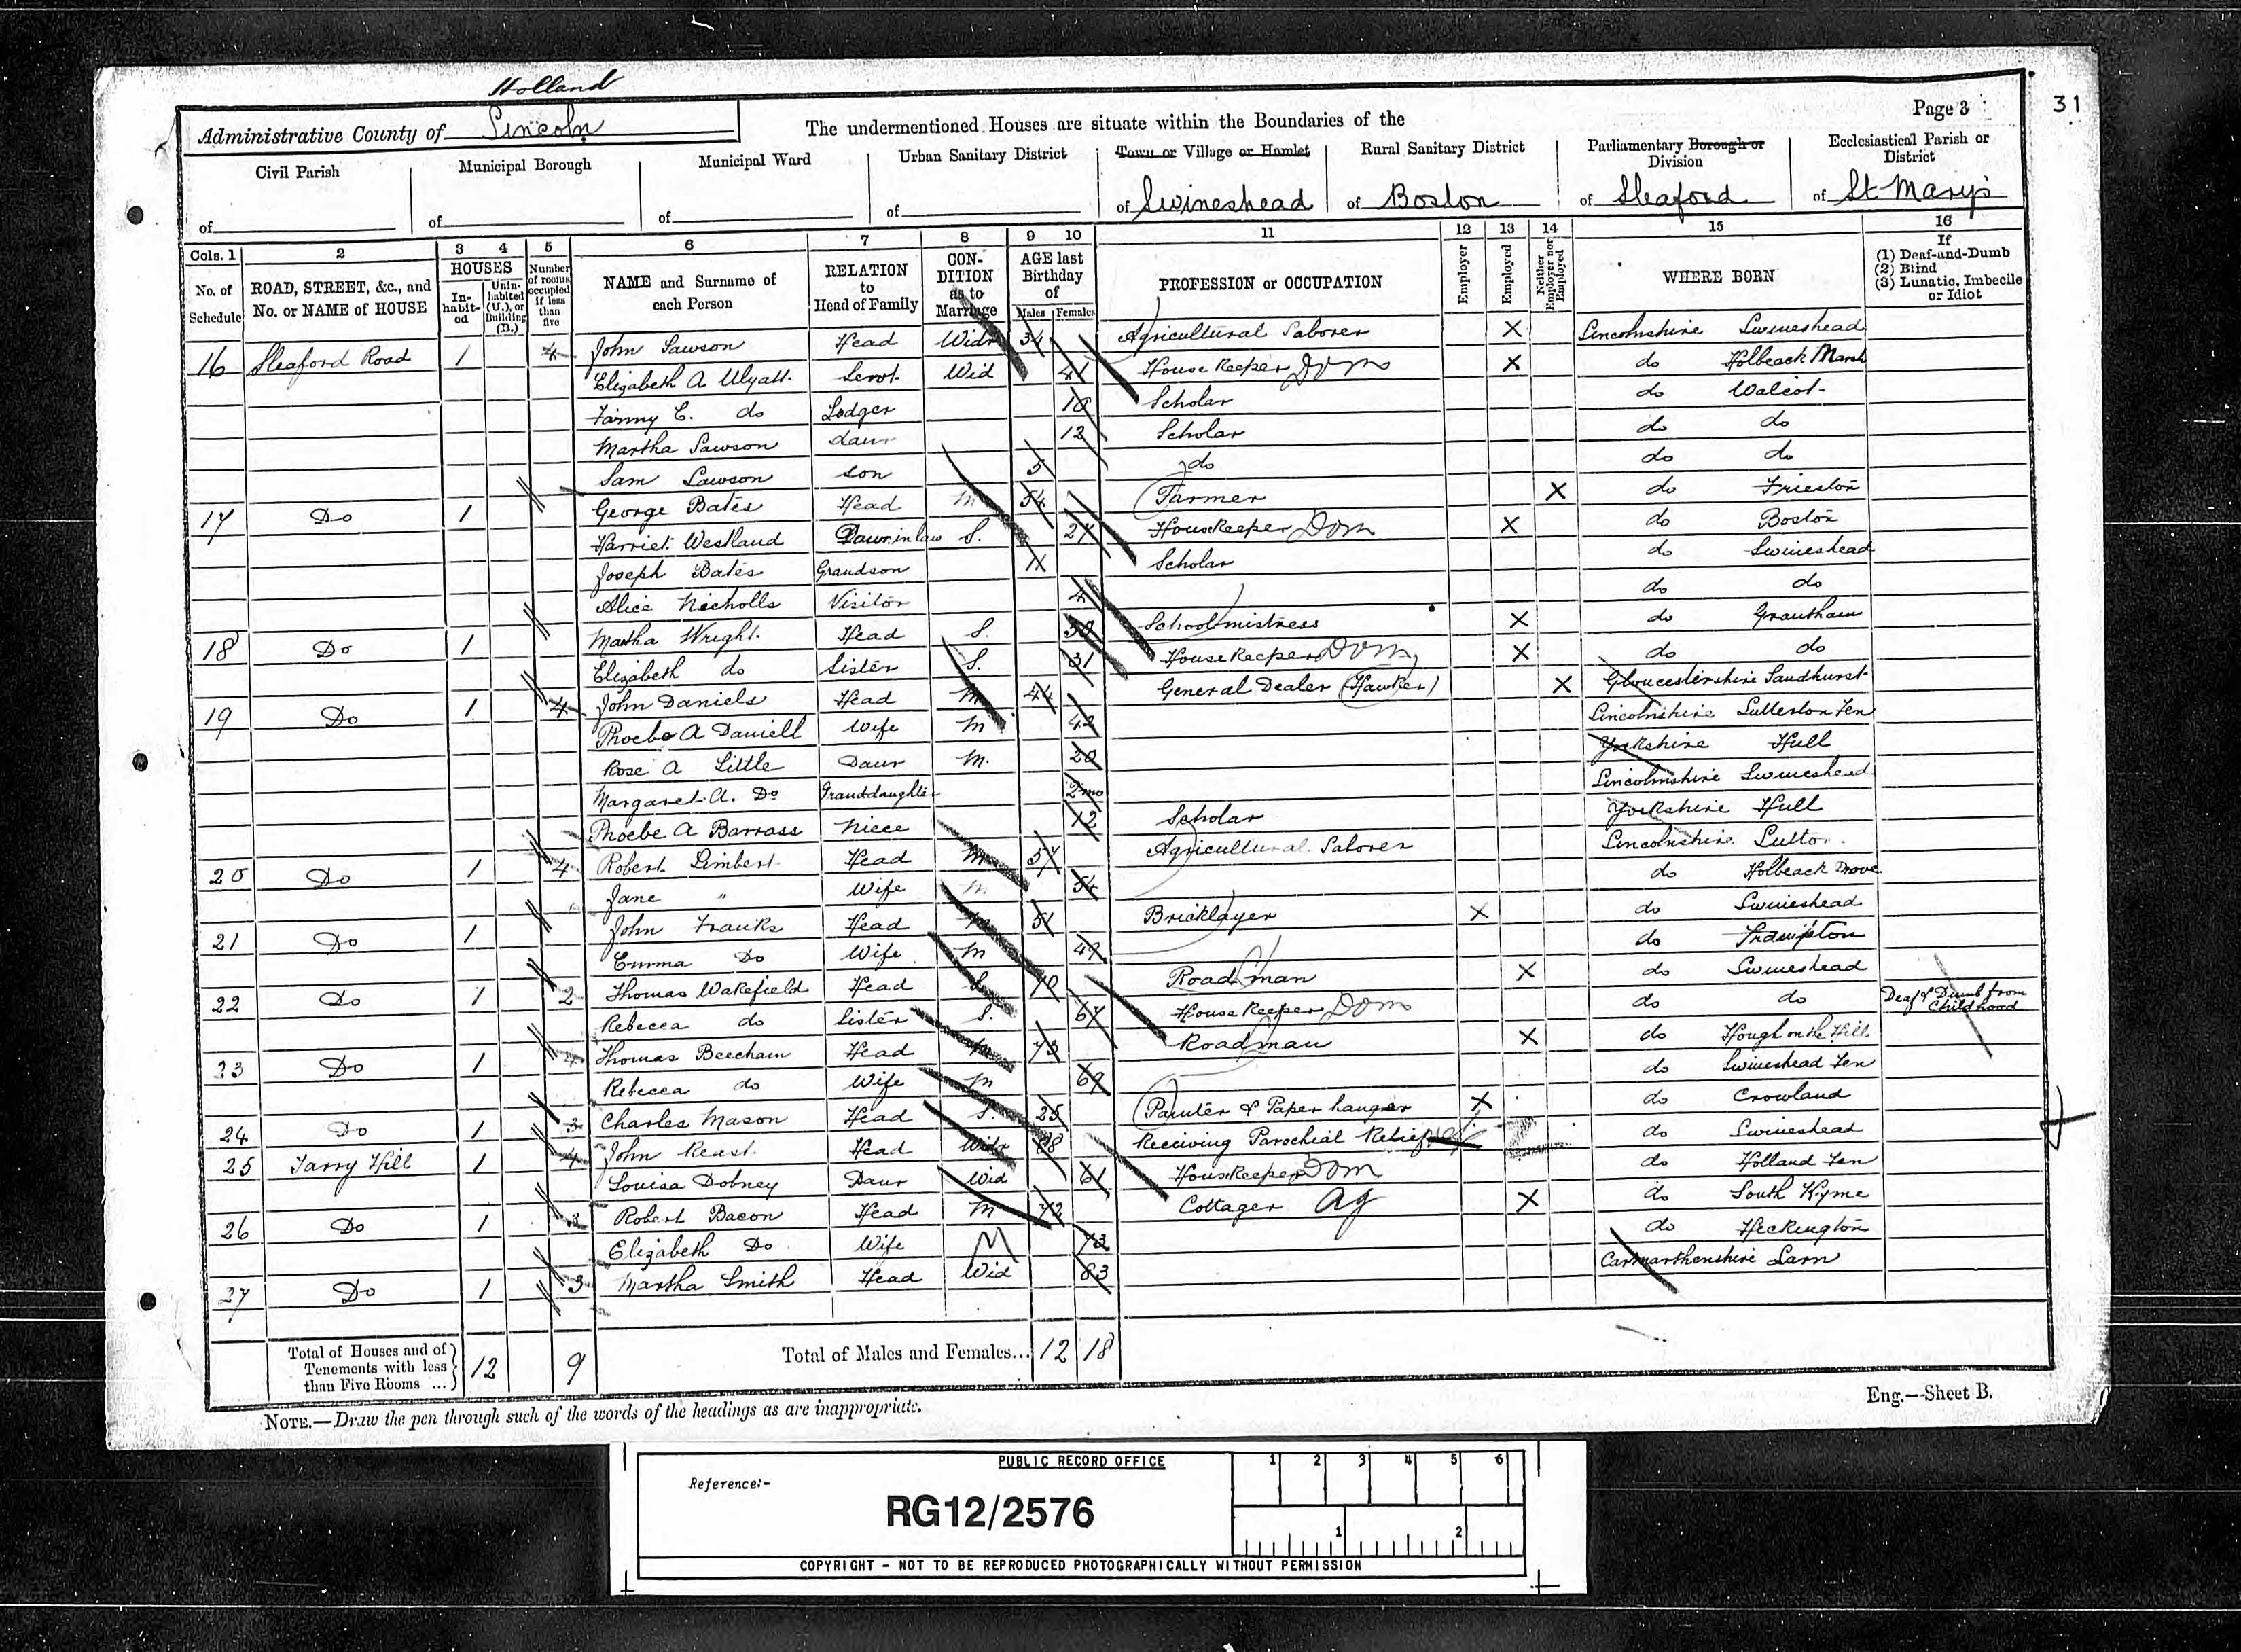 Holland
Administrative County of Lincoln
The undermentioned Houses are situate within the Boundaries of the
Page 3
31
Civil Parish
Municipal Borough
Municipal Ward
Urban Sanitary District
Town or Village or Hamlet
Rural Sanitary District
Parliamentary Borough or Division
Ecclesiastical Parish or District
of
of
of
of
of Swineshead
of Boston
of Sleaford
of St Mary's
Cols. 1 2 3 4 5 6 7 8 9 10 11 12 13 14 15 16
No. of Schedule
ROAD, STREET, &c., and No. or NAME of HOUSE
HOUSES
In-habit-ed
Unin-habited (U.), or Building (B.)
Number of rooms occupied if less than five
NAME and Surname of each Person
RELATION to Head of Family
CON-DITION as to Marriage
AGE last Birthday of
Males Females
PROFESSION or OCCUPATION
Employer
Employed
Neither Employer nor Employed
WHERE BORN
If
(1) Deaf-and-Dumb
(2) Blind
(3) Lunatic, Imbecile or Idiot
16 Sleaford Road 1 4 John Lawson Head Widr 34 Agricultural Laborer X Lincolnshire Swineshead
Elizabeth A Wyatt Servt Wid 41 House Keeper Dom X do Holbeach Marsh
Fanny E. do Lodger 10 Scholar do Walcot
Martha Lawson daur 12 Scholar do do
Sam Lawson son 5 do do do
17 Do 1 George Bates Head M 54 Farmer X do Frieston
Harriet Westland Daur in law S. 27 Housekeeper Dom X do Boston
Joseph Bates Grandson Scholar do Swineshead
Alice Nicholls Visitor 4 do do
18 Do 1 Martha Wright Head S. 30 School mistress X do Grantham
Elizabeth do Sister S. 31 House Keeper Dom X do do
19 Do 1 4 John Daniels Head M 44 General Dealer (Hawker) X Gloucestershire Sandhurst
Phoebe A Daniell Wife M 42 Lincolnshire Sutterton Fen
Rose A Little Daur M. 20 Yorkshire Hull
Margaret A. Do Granddaughter 2 mo Lincolnshire Swineshead
Phoebe A Barrass Niece 12 Scholar Yorkshire Hull
20 Do 1 4 Robert Limbert Head M 57 Agricultural Laborer Lincolnshire Sutton
Jane " Wife M 54 do Holbeach Drove
21 Do 1 John Franks Head M 51 Bricklayer X do Swineshead
Emma Do Wife M 49 do Frampton
22 Do 1 2 Thomas Wakefield Head S 70 Road man X do Swineshead
Rebecca do Sister S. 67 House Keeper Dom do do Deaf & Dumb from Childhood
23 Do 1 4 Thomas Beecham Head M 73 Road man X do Hough on the Hill
Rebecca do Wife M 69 do Swineshead Fen
24 Do 1 3 Charles Mason Head S. 25 Painter & Paper hanger X do Crowland
25 Tarry Hill 1 4 John Reast Head Widr 88 Receiving Parochial Relief do Swineshead
Louisa Dobney Daur Wid 61 Housekeeper Dom do Holland Fen
26 Do 1 3 Robert Bacon Head M 72 Cottager Ag X do South Kyme
Elizabeth Do Wife M 73 do Heckington
27 Do 1 3 Martha Smith Head Wid 83 Carmarthenshire Larn
Total of Houses and of Tenements with less than Five Rooms ... 12 9
Total of Males and Females... 12 18
NOTE.—Draw the pen through such of the words of the headings as are inappropriate.
Eng.—Sheet B.
PUBLIC RECORD OFFICE
1 2 3 4 5 6
Reference:-
RG12/2576
1 2
COPYRIGHT - NOT TO BE REPRODUCED PHOTOGRAPHICALLY WITHOUT PERMISSION